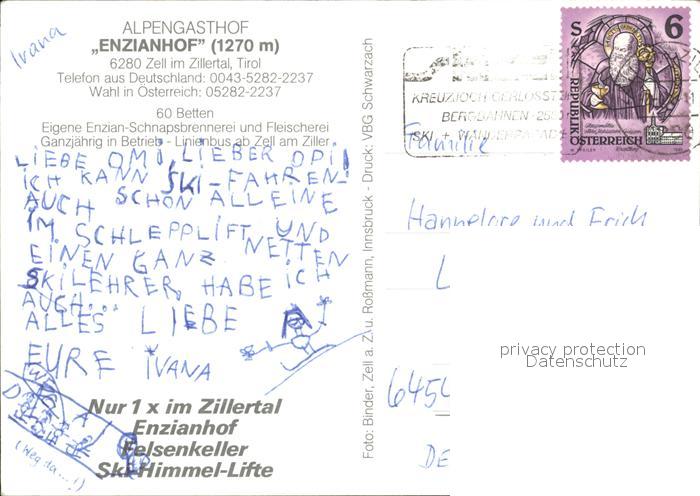 Ivana
ALPENGASTHOF
„ENZIANHOF” (1270 m)
6280 Zell im Zillertal, Tirol
Telefon aus Deutschland: 0043-5282-2237
Wahl in Österreich: 05282-2237
60 Betten
Eigene Enzian-Schnapsbrennerei und Fleischerei
Ganzjährig in Betrieb - Linienbus ab Zell am Ziller
LIEBE OMI, LIEBER OPI!
ICH KANN SKI-FAHREN.
AUCH SCHON ALLEINE
IM SCHLEPPLIFT UND
EINEN GANZ NETTEN
SKILEHRER HABE ICH
AUCH...
ALLES LIEBE
EURE IVANA
(Weg da...!)
Nur 1 x im Zillertal
Enzianhof
Felsenkeller
Ski-Himmel-Lifte
Foto: Binder, Zell a. Z. u. Roßmann, Innsbruck - Druck: VBG Schwarzach
KREUZJOCH GERLOSSTEIN
BERGBAHNEN
SKI + WANDERPARAD
S 6
REPUBLIK
ÖSTERREICH
Familie
Hannelore und Erich
L
privacy protection
Datenschutz
6454
DE